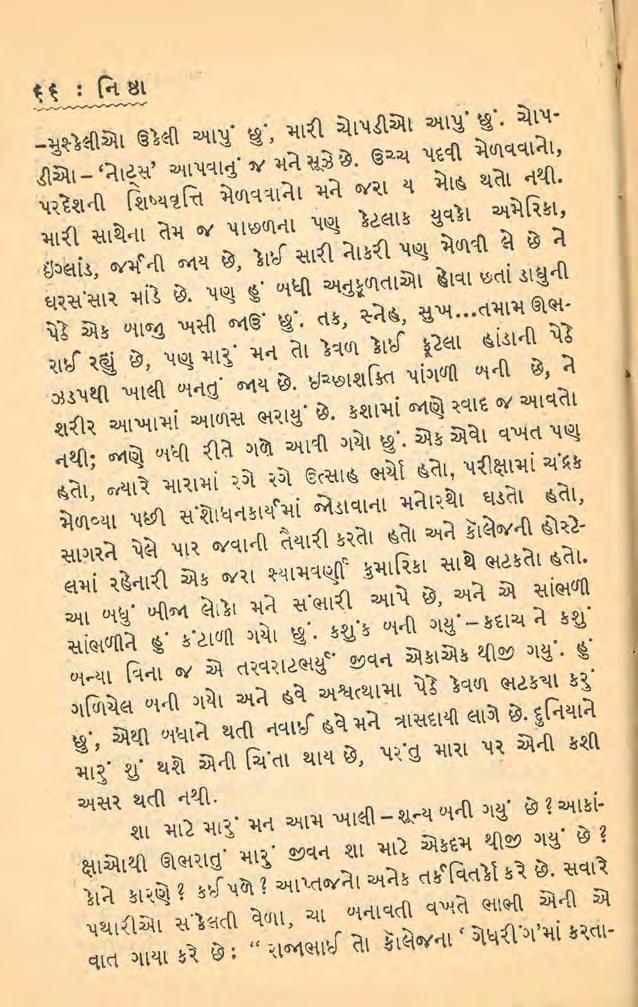 ૬૬ : નિ ષ્ઠા
–મુશ્કેલીઓ ઉકેલી આપું છું, મારી ચોપડીઓ આપું છું. ચોપ-
ડીઓ – ‘નોટ્સ’ આપવાનું જ મને સૂઝે છે. ઉચ્ચ પદવી મેળવવાનો,
પરદેશની શિષ્યવૃત્તિ મેળવવાનો મને જરા ય મોહ થતો નથી.
મારી સાથેના તેમ જ પાછળના પણ કેટલાક યુવકો અમેરિકા,
ઇંગ્લાંડ, જર્મની જાય છે, કોઈ સારી નોકરી પણ મેળવી લે છે ને
ઘરસંસાર માંડે છે. પણ હું બધી અનુકૂળતાઓ હોવા છતાં ડાઘુની
પેઠે એક બાજુ ખસી જાઉં છું. તક, સ્નેહ, સુખ...તમામ ઊભ-
રાઈ રહ્યું છે, પણ મારું મન તો કેવળ કોઈ ફૂટેલા હાંડાની પેઠે
ઝડપથી ખાલી બનતું જાય છે. ઇચ્છાશક્તિ પાંગળી બની છે, ને
શરીર આખામાં આળસ ભરાયું છે. કશામાં જાણે સ્વાદ જ આવતો
નથી; જાણે બધી રીતે ગળે આવી ગયો છું. એક એવો વખત પણ
હતો, જ્યારે મારામાં રગે રગે ઉત્સાહ ભર્યો હતો, પરીક્ષામાં ચંદ્રક
મેળવ્યા પછી સંશોધનકાર્યમાં જોડાવાના મનોરથો ઘડતો હતો,
સાગરને પેલે પાર જવાની તૈયારી કરતો હતો અને કૉલેજની હોસ્ટે-
લમાં રહેનારી એક જરા શ્યામવર્ણી કુમારિકા સાથે ભટકતો હતો.
આ બધું બીજા લોકો મને સંભારી આપે છે, અને એ સાંભળી
સાંભળીને હું કંટાળી ગયો છું. કશુંક બની ગયું – કદાચ ને કશું
બન્યા વિના જ એ તરવરાટભર્યું જીવન એકાએક થીજી ગયું. હું
ગળિયેલ બની ગયો અને હવે અશ્વત્થામા પેઠે કેવળ ભટક્યા કરું
છું, એથી બધાને થતી નવાઈ હવે મને ત્રાસદાયી લાગે છે. દુનિયાને
મારું શું થશે એની ચિંતા થાય છે, પરંતુ મારા પર એની કશી
અસર થતી નથી.
શા માટે મારું મન આમ ખાલી – શૂન્ય બની ગયું છે ? આકાં-
ક્ષાઓથી ઊભરાતું મારું જીવન શા માટે એકદમ થીજી ગયું છે ?
કોને કારણે ? કઈ પળે ? આપ્તજનો અનેક તર્કવિતર્કો કરે છે. સવારે
પથારીઓ સંકેલતી વેળા, ચા બનાવતી વખતે ભાભી એની એ
વાત ગાયા કરે છે : “ રાજાભાઈ તો કૉલેજના ‘ ગેધરીંગ’માં કરતા-